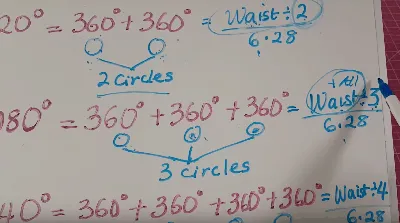 20° = 360° + 360° = Waist ÷ 2
6.28
2 Circles
080° = 360° + 360° + 360° = Waist ÷ 3
6.28
3 circles
40° = 360° + 360° + 360° + 360° = Waist ÷ 4
6.28